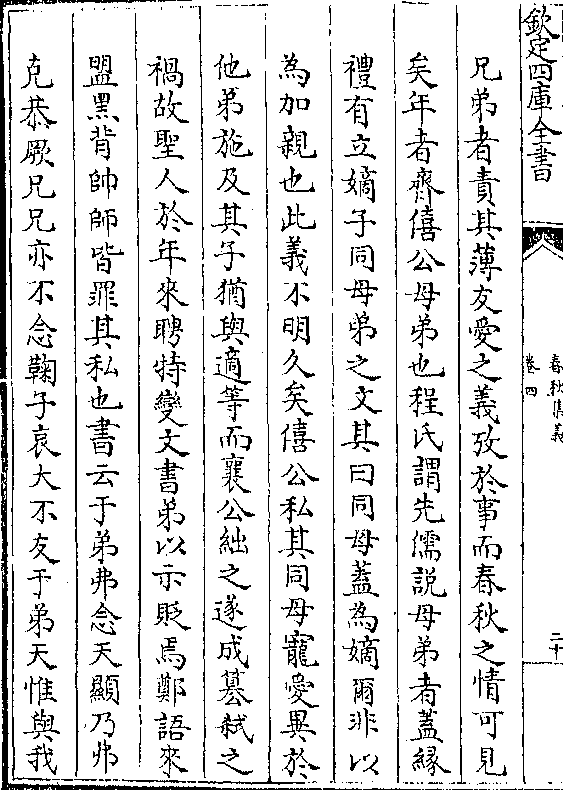 欽定四庫全書
春秋集義
卷四
二十
兄弟者責其薄友愛之義攷於事而春秋之情可見
矣年者齊僖公母弟也程氏謂先儒説母弟者蓋緣
禮有立嫡子同母弟之文其曰同母蓋為嫡爾非以
為加親也此義不明久矣僖公私其同母寵愛異於
他弟施及其子猶與適等而襄公絀之遂成簒弑之
禍故聖人於年來聘特變文書弟以示貶焉鄭語來
盟黑背帥師皆罪其私也書云于弟弗念天顯乃弗
克恭厥兄兄亦不念鞠子哀大不友于弟天惟與我